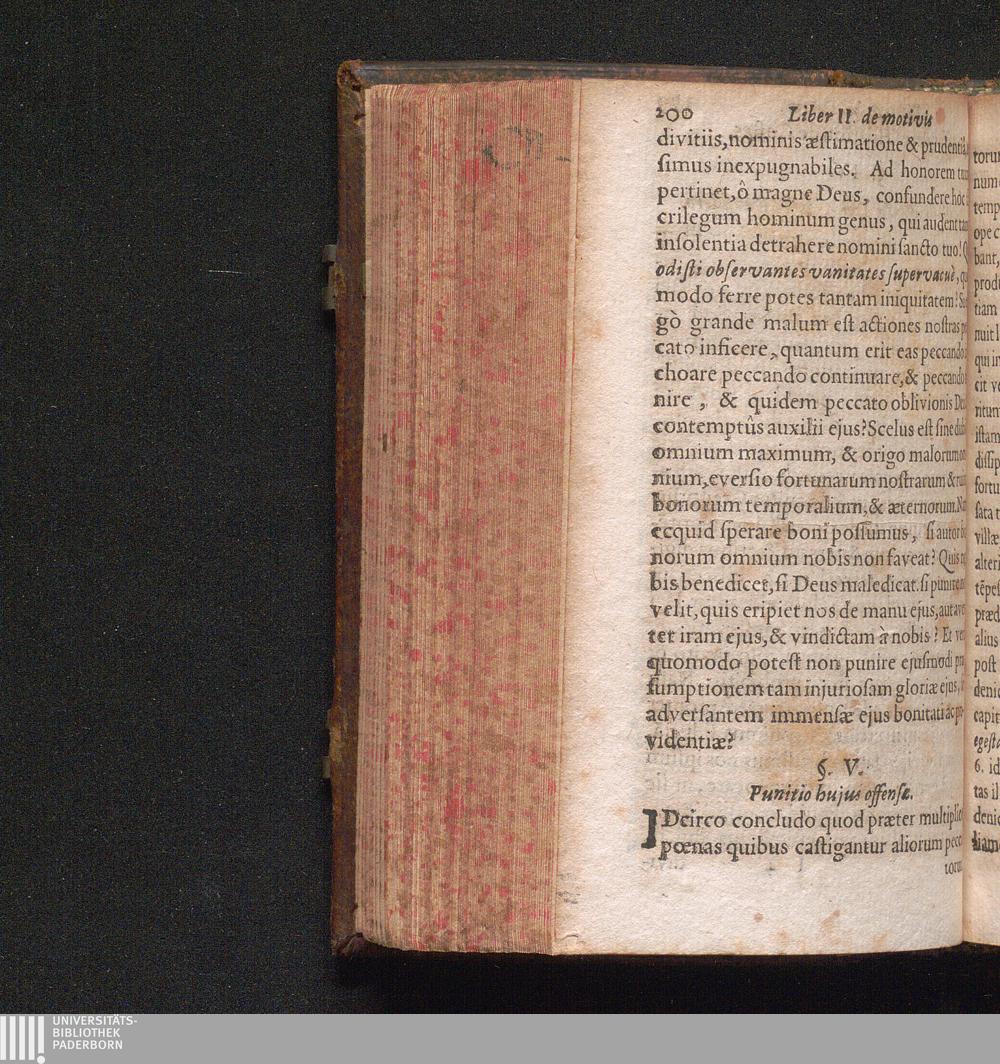 200 Liber II. de motivis
divitiis, nominis æstimatione & prudentiâ,
simus inexpugnabiles. Ad honorem
pertinet, ô magne Deus, confundere hoc
crilegum hominum genus, qui audent
insolentia detrahere nomini sancto tuo!
odisti observantes vanitates supervacuè,
modo ferre potes tantam iniquitatem?
gò grande malum est actiones nostras
cato inficere, quantum erit eas peccando
choare peccando continuare, & peccando
nire, & quidem peccato oblivionis
contemptûs auxilii ejus? Scelus est sine
omnium maximum, & origo malorum
nium, eversio fortunarum nostrarum &
bonorum temporalium, & æternorum.
ecquid sperare boni possumus, si autor
norum omnium nobis non faveat? Quis
bis benedicet, si Deus maledicat. si punire
velit, quis eripiet nos de manu ejus, aut
tet iram ejus, & vindictam à nobis? Et
quomodo potest non punire ejusmodi
sumptionem tam injuriosam gloriæ ejus,
adversantem immensæ ejus bonitati ac
videntiæ?
§. V.
Punitio hujus offensæ.
IDcirco concludo quod præter
pœnas quibus castigantur aliorum
numq
temp
ope c
bant,
tiam
qui in
cit ve
istam
dissip
fortu
sata t
villæ
alteri
præd
alius
post
denic
capit
6. id
tas il
denic
UNIVERSITÄTS-
BIBLIOTHEK
PADERBORN